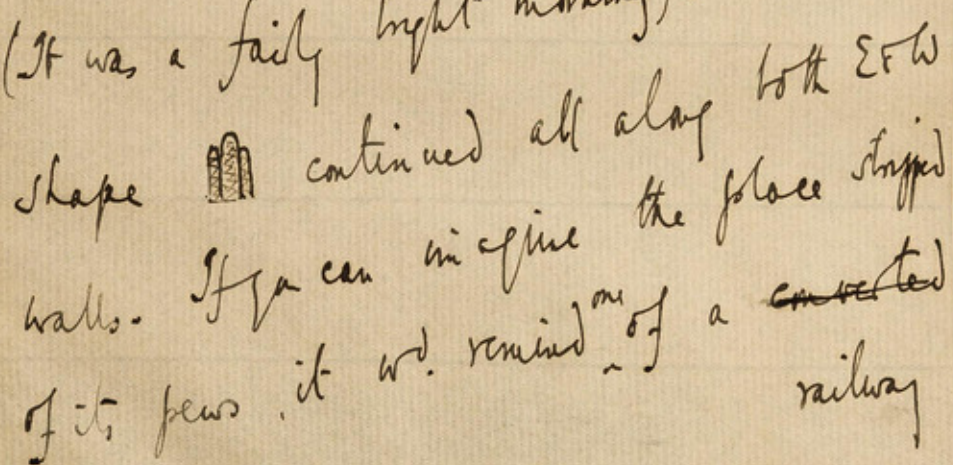 (It was a fairly bright morning)
shape continued all along both E & W
walls. If you can imagine the place stripped
of its pews, it wd. remind one of a converted
railway